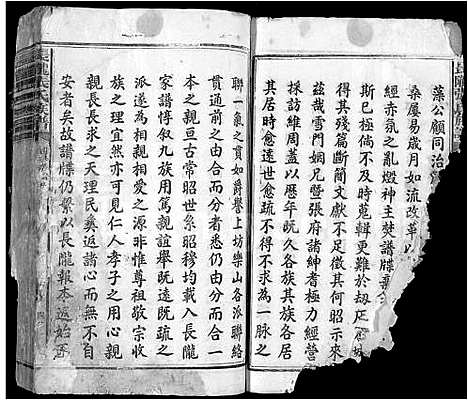 藻公顧同治
桑屢易歲月如流改革以
經赤氛之亂燬神主焚譜牒
斯已極倘不及時蒐輯更難於刼
得其殘篇斷簡文獻不足徵其何昭示來
茲哉雪門嫻兄暨張府諸紳耆極力經營
統祈維周蓋以歷年既久各族其族各居
其居時愈遠世愈疏不得不求為一脉之
聯一氣之貫如爵譽上坊樂山各派聯絡
貫通前之由合而分者悉仍由分而合一
本之親亘古常昭世系昭穆均載入長隴
家譜惇叙九族用篤親誼舉既遠既疏之
派遂為相親相愛之源非惟尊祖敬宗收
族之理宜然亦可見仁人孝子之用心也
親長長求之天理民彝返諸心而無不自
安者矣故譜牒仍繫以長隴報本返始